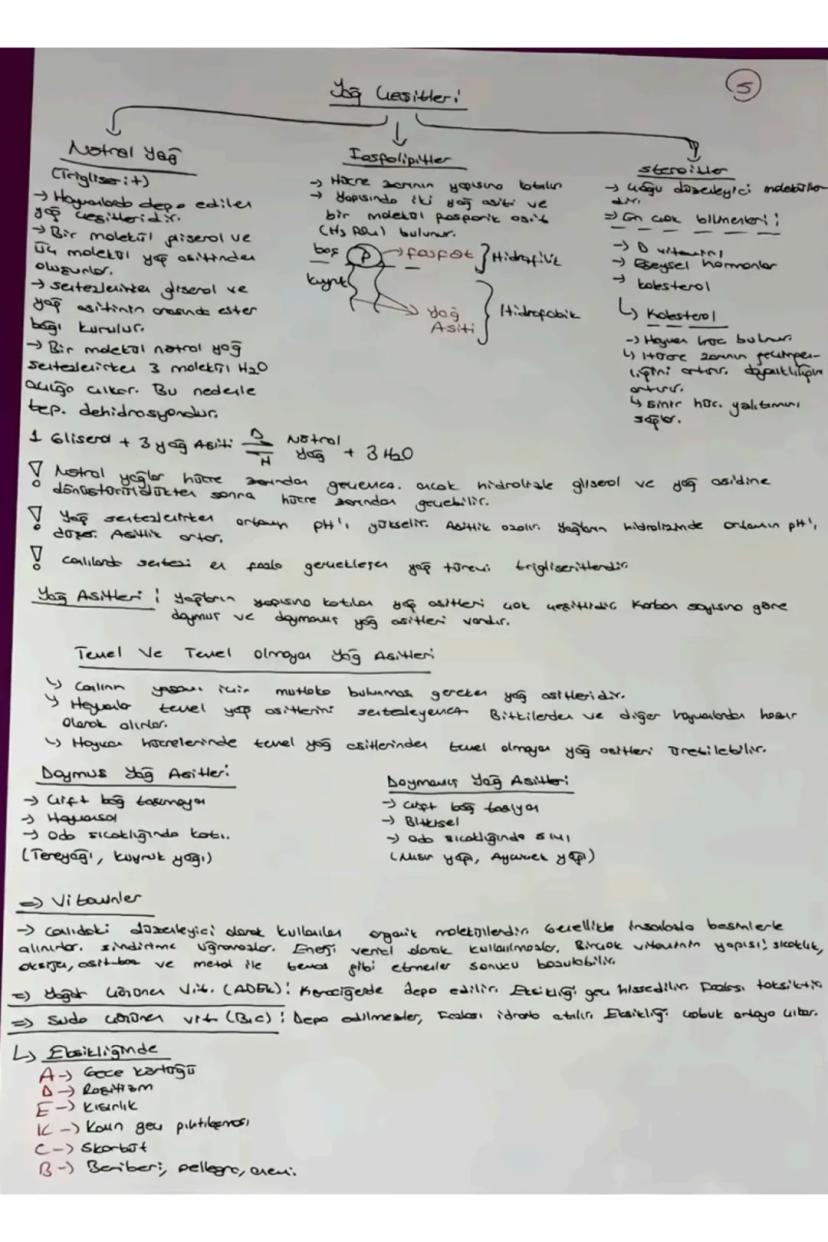 5
Yağ Çeşitleri
Nötral Yağ
(Trigliserit)
→ Hayvanlarda depo edilen
yağ çeşitleridir.
→ Bir molekül gliserol ve
üç molekül yağ asitinden
oluşurlar.
→ sentezlenirken gliserol ve
yağ asitinin arasında ester
bağı kurulur.
→ Bir molekül nötral yağ
sentezlenirken 3 molekül H2O
açığa çıkar. Bu nedenle
tep. dehidrasyondur.
Fosfolipitler
→ Hücre zarının yapısına katılır
→ Yapısında iki yağ asiti ve
bir molekül fosforik asit
(H3PO4) bulunur.
baş P → fosfat } Hidrofilik
kuyruk → Yağ Asiti } Hidrofobik
Steroitler
→ Çoğu düzenleyici moleküller
dir.
⇒ En çok bilinenleri;
→ D vitamini
→ Eşeysel hormonlar
→ kolesterol
↳ Kolesterol
→ Hayvan hüc. bulunur.
↳ Hücre zarının geçirgen-
liğini artırır. dayanıklılığını
artırır.
↳ sinir hüc. yalıtımını
sağlar.
1 Gliserol + 3 yağ Asiti D ⇌ H Nötral Yağ + 3 H2O
! Nötral yağlar hücre zarından geçemez. ancak hidrolizle gliserol ve yağ asidine
dönüştürüldükten sonra hücre zarından geçebilir.
! Yağ sentezlenirken ortamın pH'ı yükselir. Asitlik azalır. Yağların hidrolizinde ortamın pH'ı
düşer. Asitlik artar.
! Canlılarda sentezi en fazla gerçekleşen yağ türevi trigliseritlerdir.
Yağ Asitleri; Yağların yapısına katılan yağ asitleri çok çeşitlidir. Karbon sayısına göre
doymuş ve doymamış yağ asitleri vardır.
Temel Ve Temel Olmayan Yağ Asitleri
↳ Canlının yaşamı için mutlaka bulunması gereken yağ asitleridir.
↳ Hayvanlar temel yağ asitlerini sentezleyemez Bitkilerden ve diğer hayvanlardan hazır
olarak alırlar.
↳ Hayvan hücrelerinde temel yağ asitlerinden temel olmayan yağ asitleri üretilebilir.
Doymuş Yağ Asitleri
→ Çift bağ taşımayan
→ Hayvansal
→ Oda sıcaklığında katı.
(Tereyağı, kuyruk yağı)
Doymamış Yağ Asitleri
→ Çift bağ taşıyan
→ Bitkisel
→ Oda sıcaklığında sıvı
(Mısır yağı, Ayçiçek yağı)
⇒ Vitaminler
→ Canlıdaki düzenleyici olarak kullanılan organik moleküllerdir. Genellikle insanlarda besinlerle
alınırlar. sindirime uğramazlar. Enerji verici olarak kullanılmazlar. Birçok vitaminin yapısı; sıcaklık,
oksijen, asit-baz ve metal ile temas gibi etmenler sonucu bozulabilir.
⇒ Yağda Çözünen Vit. (ADEK); Karaciğerde depo edilir. Eksikliği geç hissedilir. Fazlası toksiktir.
⇒ Suda Çözünen vit. (B,C); Depo edilmezler, Fazlası idrarla atılır. Eksikliği çabuk ortaya çıkar.
↳ Eksikliğinde
A → Gece körlüğü
D → Raşitizm
E → Kısırlık
K → Kanın geç pıhtılaşması
C → Skorbüt
B → Beriberi, pellegra, anemi.